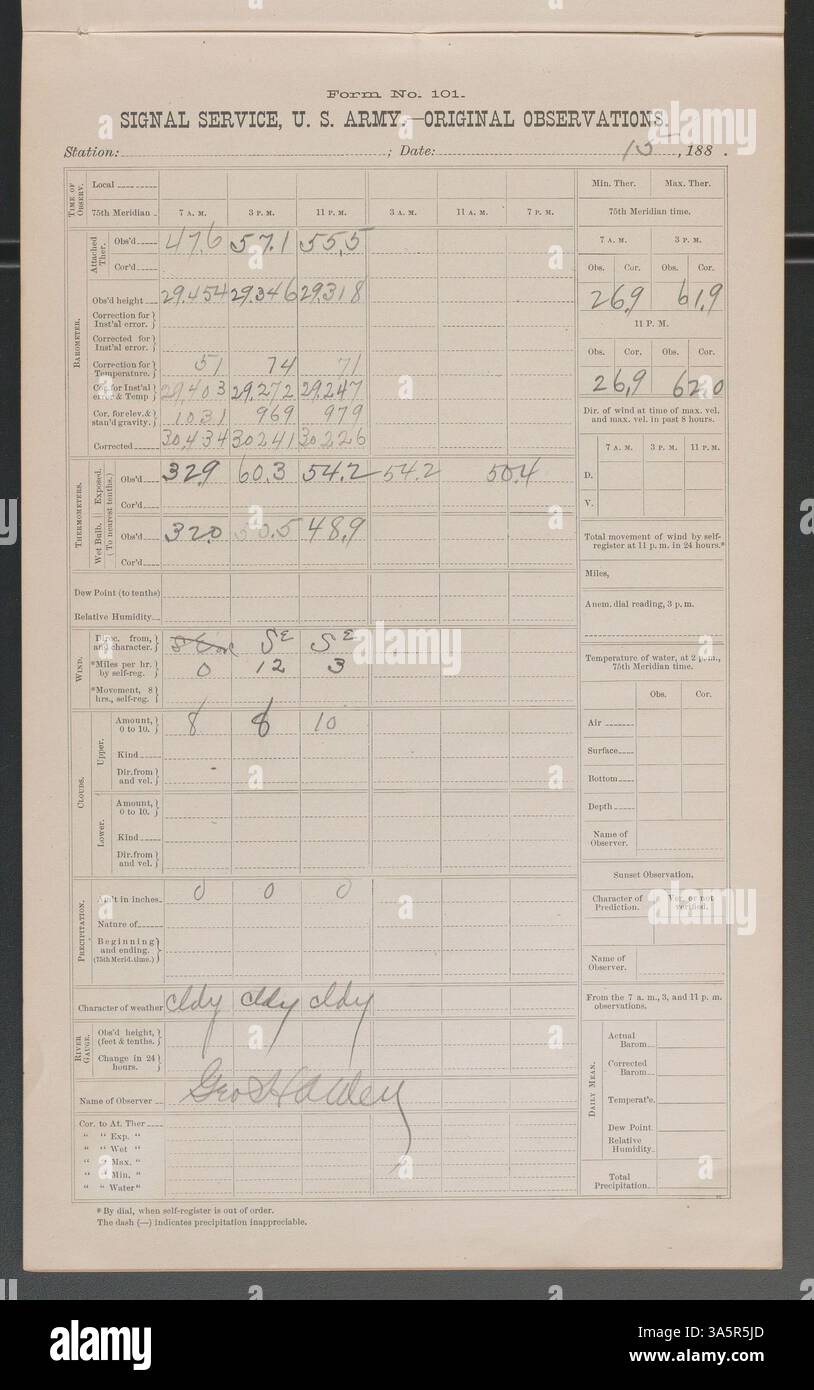 Form No. 101.
SIGNAL SERVICE, U. S. ARMY.—ORIGINAL OBSERVATIONS.
Station: ; Date: 15, 188 .
TIME OF OBSERV.
Local
75th Meridian 7 A. M. 3 P. M. 11 P. M. 3 A. M. 11 A. M. 7 P. M.
BAROMETER.
Attached Ther.
Obs'd 47.6 57.1 55.5
Cor'd
Obs'd height 29.454 29.346 29.318
Correction for Inst'al error.
Corrected for Inst'al error.
Correction for Temperature. 51 74 71
Cor. for Inst'al error & Temp 29.403 29.272 29.247
Cor. for elev. & stan'd gravity. 1031 969 979
Corrected 30.434 30241 30226
THERMOMETERS.
Exposed. (To nearest tenths.)
Obs'd 32.9 60.3 54.2 54.2 50.4
Cor'd
Wet Bulb.
Obs'd 32.0 50.5 48.9
Cor'd
Dew Point (to tenths)
Relative Humidity
WIND.
Direc. from, and character. SE SE
*Miles per hr. by self-reg. 0 12 3
*Movement, 8 hrs., self-reg.
CLOUDS.
Upper.
Amount, 0 to 10. 8 8 10
Kind
Dir. from and vel.
Lower.
Amount, 0 to 10.
Kind
Dir. from and vel.
PRECIPITATION.
Am't in inches 0 0 0
Nature of
Beginning and ending. (75th Merid. time.)
Character of weather cldy cldy cldy
RIVER GAUGE.
Obs'd height, (feet & tenths.
Change in 24 hours.
Name of Observer Geo
Cor. to At. Ther
" " Exp. "
" " Wet "
" " Max. "
" " Min. "
" " Water"
*By dial, when self-register is out of order.
The dash (—) indicates precipitation inappreciable.
Min. Ther. Max. Ther.
75th Meridian time.
7 A. M. 3 P. M.
Obs. Cor. Obs. Cor.
26.9 61.9
11 P. M.
Obs. Cor. Obs. Cor.
26.9 62.0
Dir. of wind at time of max. vel. and max. vel. in past 8 hours.
7 A. M. 3 P. M. 11 P. M.
D.
V.
Total movement of wind by self-register at 11 p. m. in 24 hours.*
Miles,
Anem. dial reading, 3 p. m.
Temperature of water, at 2 p. m., 75th Meridian time.
Obs. Cor.
Air
Surface
Bottom
Depth
Name of Observer.
Sunset Observation.
Character of Prediction. Ver. or not verified.
Name of Observer.
From the 7 a. m., 3, and 11 p. m. observations.
DAILY MEAN.
Actual Barom.
Corrected Barom.
Temperat'e.
Dew Point.
Relative Humidity
Total Precipitation.
alamy
alamy
alamy
a
alamy
Image ID: 3A5R5JD
www.alamy.com